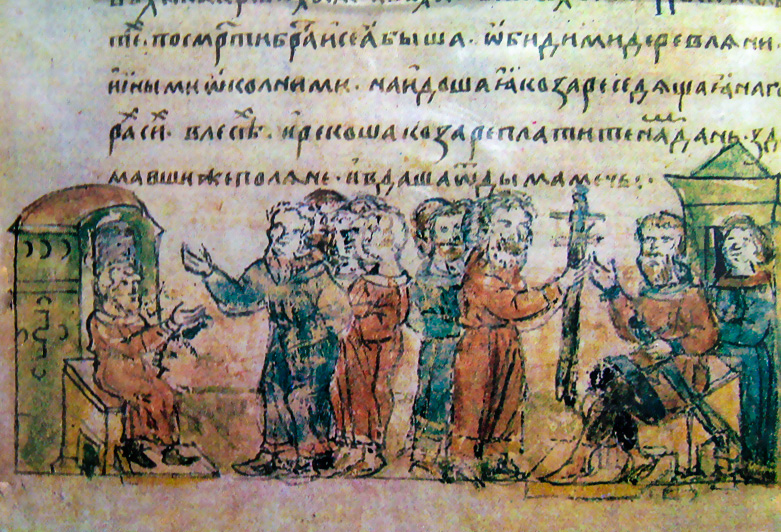 посмр҃тибра҃исеѧбыша. ѡбидимидеревлѧни.
инымиѡколними. наидошаꙗкозареседѧщаꙗнаго
расиⷯ. влесѣⷯ. ирекошакозареплатитенаⷨдань. зд
мавшижеполѧне. ивдашаѿдымамечь:.